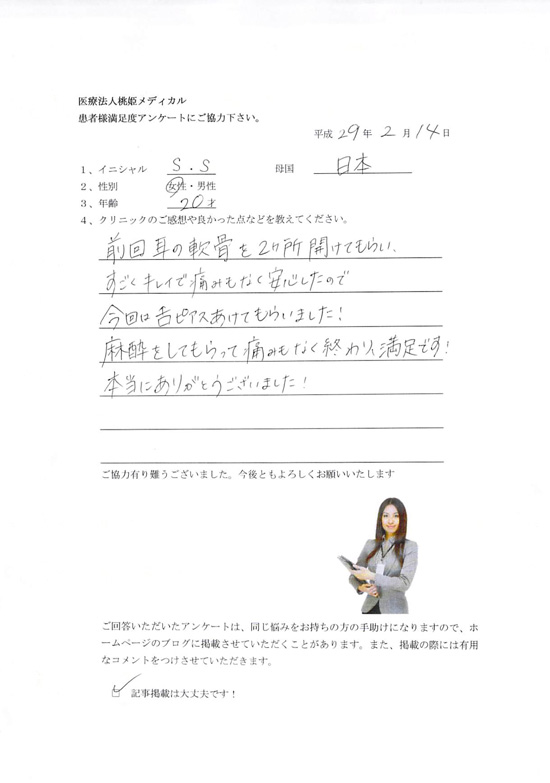 医療法人桃姫メディカル
患者様満足度アンケートにご協力下さい。
平成 29 年 2 月 14 日
1、イニシャル S.S 母国 日本
2、性別 女性・男性
3、年齢 20才
4、クリニックのご感想や良かった点などを教えてください。
前回耳の軟骨を2ヶ所開けてもらい、
すごくキレイで痛みもなく安心したので
今回は舌ピアスあけてもらいました!
麻酔をしてもらって痛みもなく終わり、満足です!
本当にありがとうございました!
ご協力有り難うございました。今後ともよろしくお願いいたします
ご回答いただいたアンケートは、同じ悩みをお持ちの方の手助けになりますので、ホ
ームページのブログに掲載させていただくことがあります。また、掲載の際には有用
なコメントをつけさせていただきます。
記事掲載は大丈夫です!